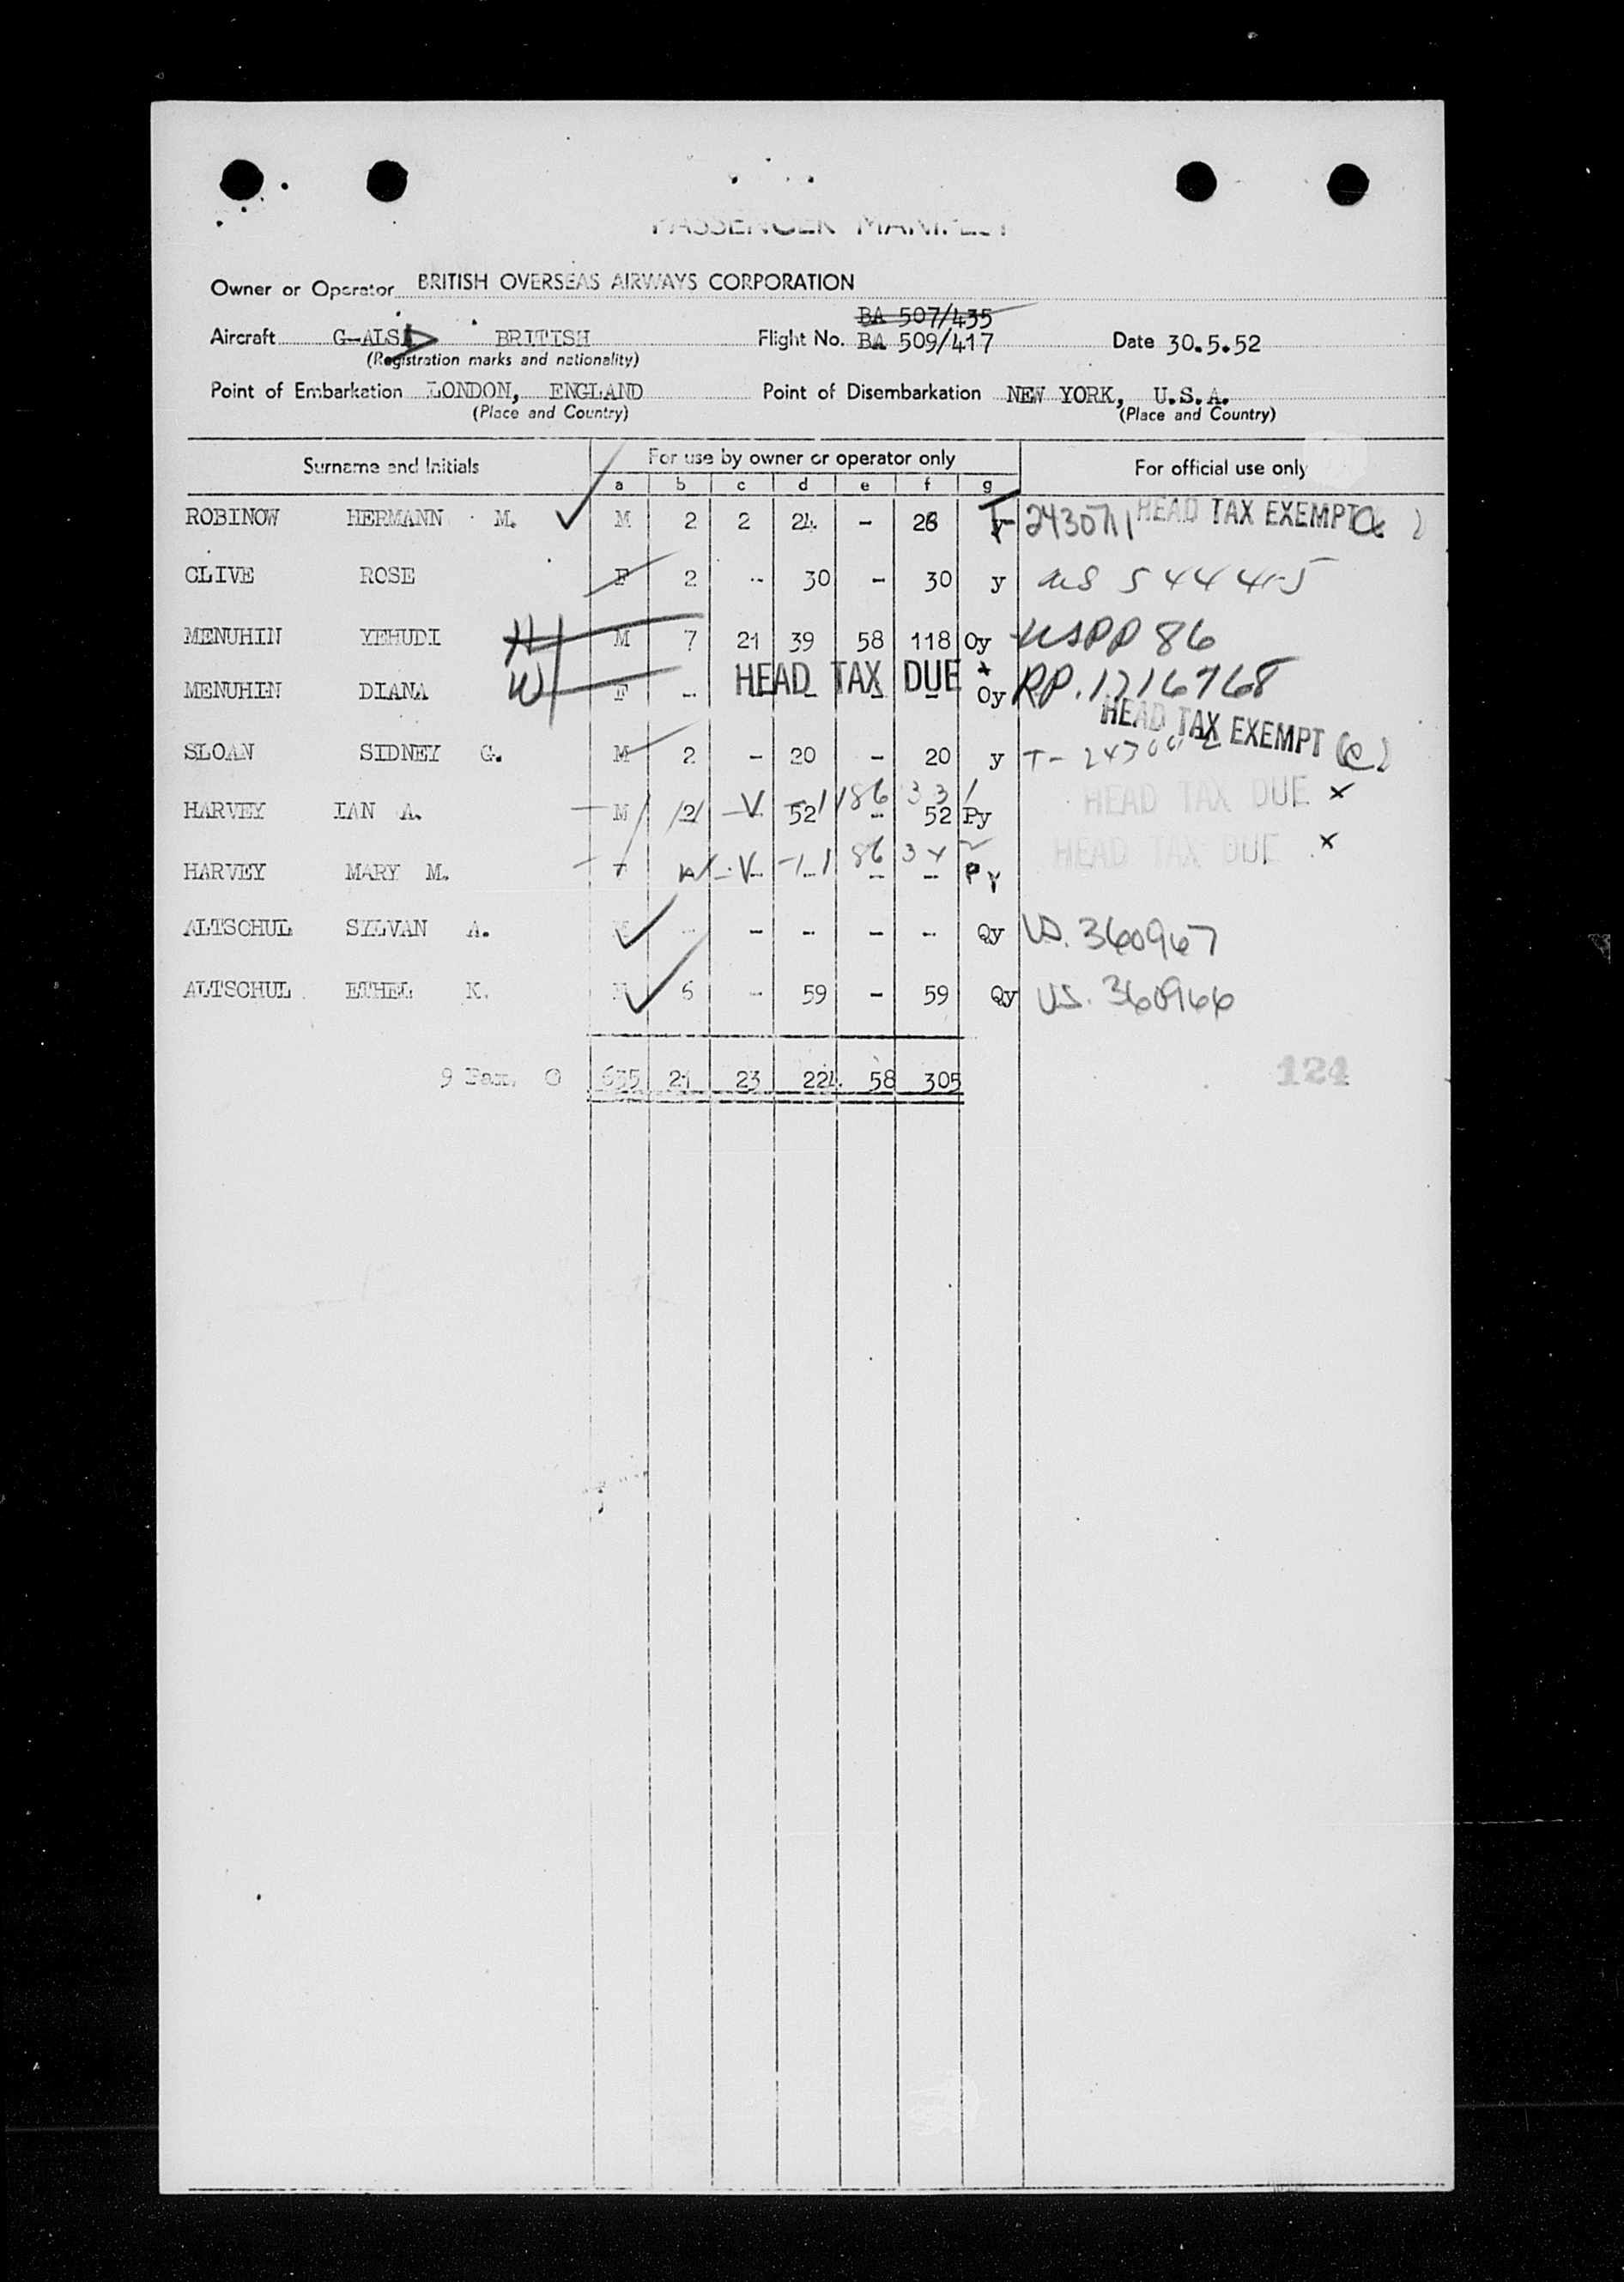 PASSENGER MANIFEST
Owner or Operator BRITISH OVERSEAS AIRWAYS CORPORATION
BA 507/435
Aircraft G-ALSD BRITISH Flight No. BA 509/417 Date 30.5.52
(Registration marks and nationality)
Point of Embarkation LONDON, ENGLAND Point of Disembarkation NEW YORK, U.S.A.
(Place and Country) (Place and Country)
Surname and Initials For use by owner or operator only For official use only
a b c d e f g
ROBINOW HERMANN M. M 2 2 24 - 26 y T-2430711 HEAD TAX EXEMPT
CLIVE ROSE F 2 - 30 - 30 y 544415
MENUHIN YEHUDI H M 7 21 39 58 118 Oy USPP 86
MENUHIN DIANA W F - - - - - Oy RP.1716768
HEAD TAX DUE *
HEAD TAX EXEMPT (c)
SLOAN SIDNEY G. M 2 - 20 - 20 y T-
HARVEY IAN A. M 2 - 52 - 52 Py HEAD TAX DUE x
V 186 331
HARVEY MARY M. F - - - - Py HEAD TAX DUE x
V 86
ALTSCHUL SYLVAN A. M - - - - - Qy US. 360967
ALTSCHUL ETHEL K. 6 - 59 - 59 Qy US. 360966
9 Pax. 0 635 21 23 224 58 305
124